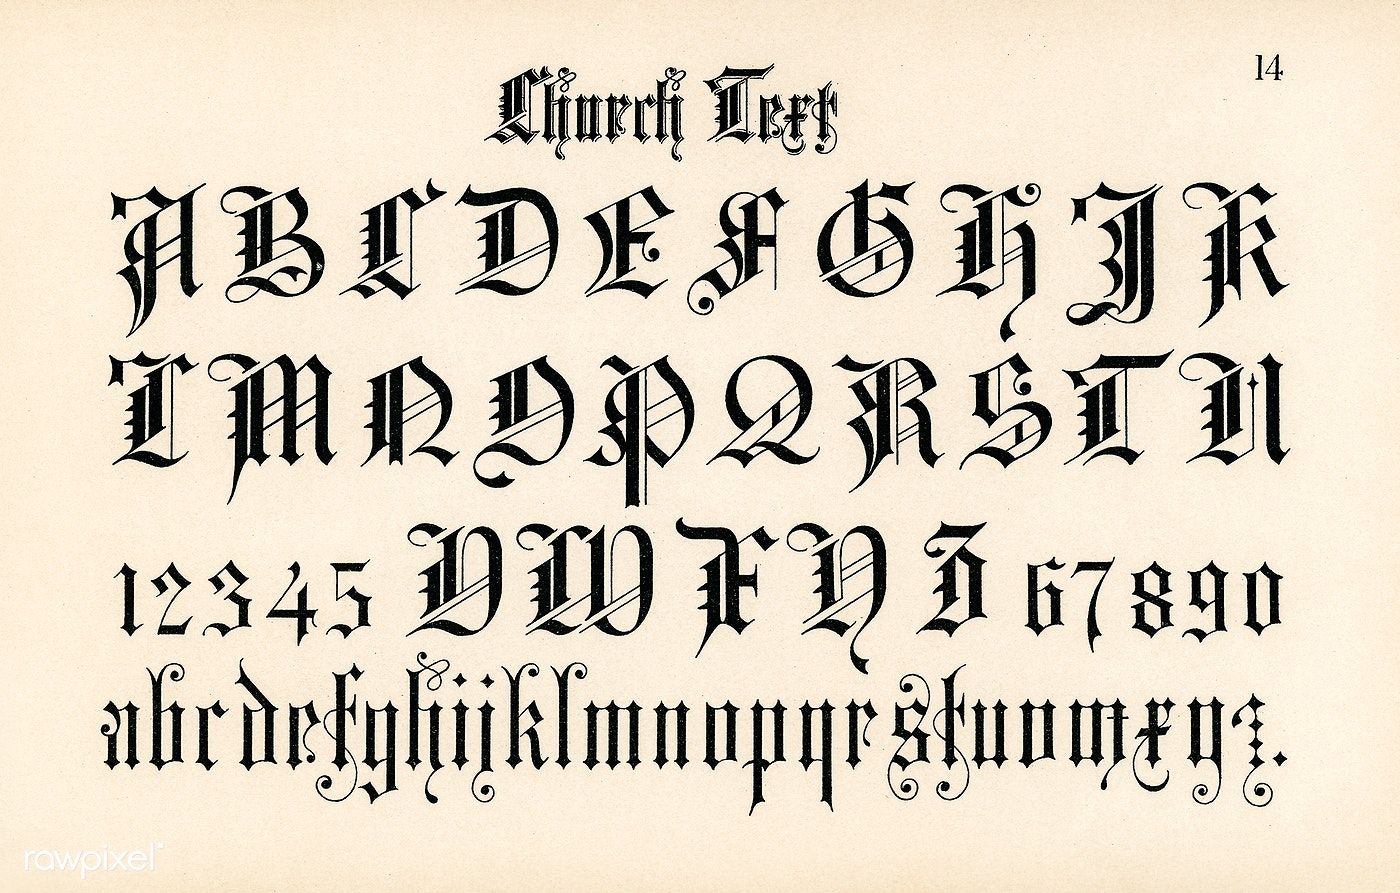 14
Church Text
A B C D E F G H J K
L M N O P Q R S T U
12345 V W X Y Z 67890
abcdefghijklmnopqrstuvwxyz.
rawpixel